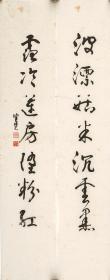 波漂菰米沉云黑
露冷莲房坠粉红